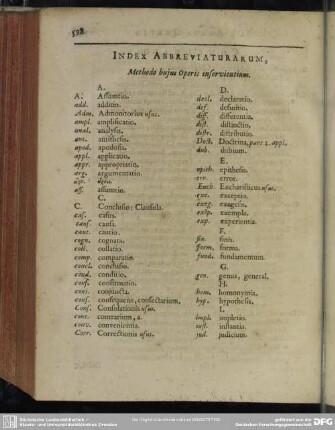 528
INDEX ABBREVIATURARUM,
Methodo hujus Operis inservientium.
A.
A. Assumtio.
add. additio.
Adm. Admonitorius usus.
ampl. amplificatio.
anal. analysis.
ant. antithesis.
apod. apodosis.
appl. applicatio.
appr. appropriatio.
arg. argumentatio.
ass. assumtio.
C.
C. Conclusio: Clausula.
cas. casus.
caus. causa.
caut. cautio.
cogn. cognata.
coll. collatio.
comp. comparatio.
concl. conclusio.
cond. conditio.
conf. confirmatio.
conj. conjuncta.
cons. consequens, consectarium.
Cons. Consolationis usus.
cont. contrarium, a.
conv. convenientia.
Corr. Correctionis usus.
D.
decl. declaratio.
def. definitio.
diff. differentia.
dist. distinctio.
distr. distributio.
Doct. Doctrina, pars 2. appl.
dub. dubium.
E.
epith. epithesis.
err. error.
Euch. Eucharisticus usus.
exc. exceptio.
exeg. exegesis.
exep. exempla.
exp. experientia.
F.
fin. finis.
form. forma.
fund. fundamentum.
G.
gen. genus, general.
H.
hom. homonymia.
hyp. hypothesis.
I.
impl. impletio.
inst. instantia.
jud. judicium.